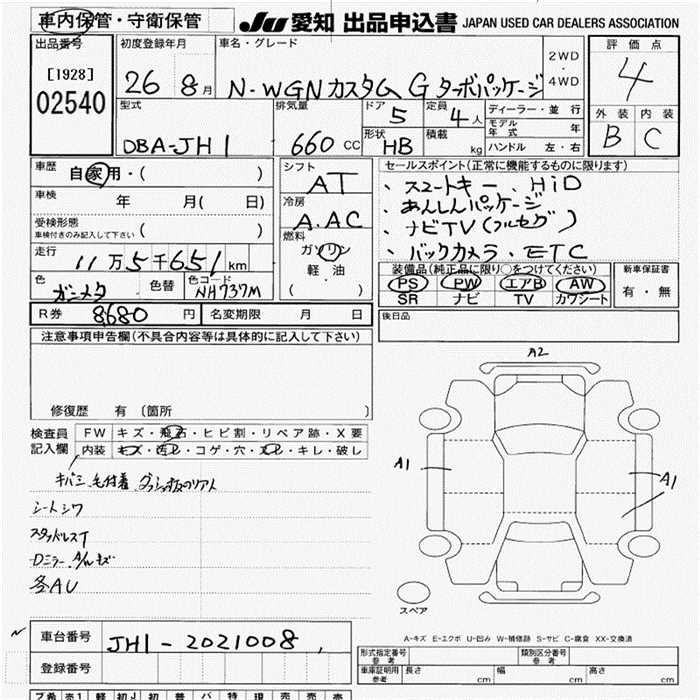 車内保管・守衛保管 JU 愛知 出品申込書 JAPAN USED CAR DEALERS ASSOCIATION
出品番号 初度登録年月 車名・グレード 2WD 評価点
[1928] 26 8月 N-WGNカスタム G ターボパッケージ 4WD 4
02540 型式 排気量 ドア 5 定員 4人 ディーラー・並行 外装 内装
DBA-JH1 660 CC 形状 HB 積載 kg モデル年式 年 B C
ハンドル 左・右
車歴 自家用・( ) シフト AT セールスポイント(正常に機能するものに限ります)
車検 年 月(日) 冷房 A.AC 、スマートキー、HiD
受検形態 、あんしんパッケージ
車検付きのみ記入して下さい( ) 燃料 、ナビTV(フルセグ)
走行 11万5千651km ガソリン 、バックカメラ、ETC
色 ガンメタ 色替 色コード NH737M 軽油 装備品(純正品に限り○をつけてください) 新車保証書
( ) PS PW エアB AW 有・無
SR ナビ TV カワシート
R券 8,680円 名変期限 月 日 後日品
注意事項申告欄(不具合内容等は具体的に記入して下さい)
A2
修復歴 有 (箇所 )
検査員 FW キズ・飛石・ヒビ割・リペア跡・X要
記入欄 内装 キズ・汚レ・コゲ・穴・スレ・キレ・破レ
A1 A1
シートシワ
スタッドレスT
Dミラー
各AU
スペア
A-キズ E-エクボ U-凹み W-補修跡 S-サビ C-腐食 XX-交換済
車台番号 JH1-2021008
登録番号
形式指定番号 参考 類別区分番号 参考
車庫証明用 参考 長さ cm 幅 cm 高さ cm